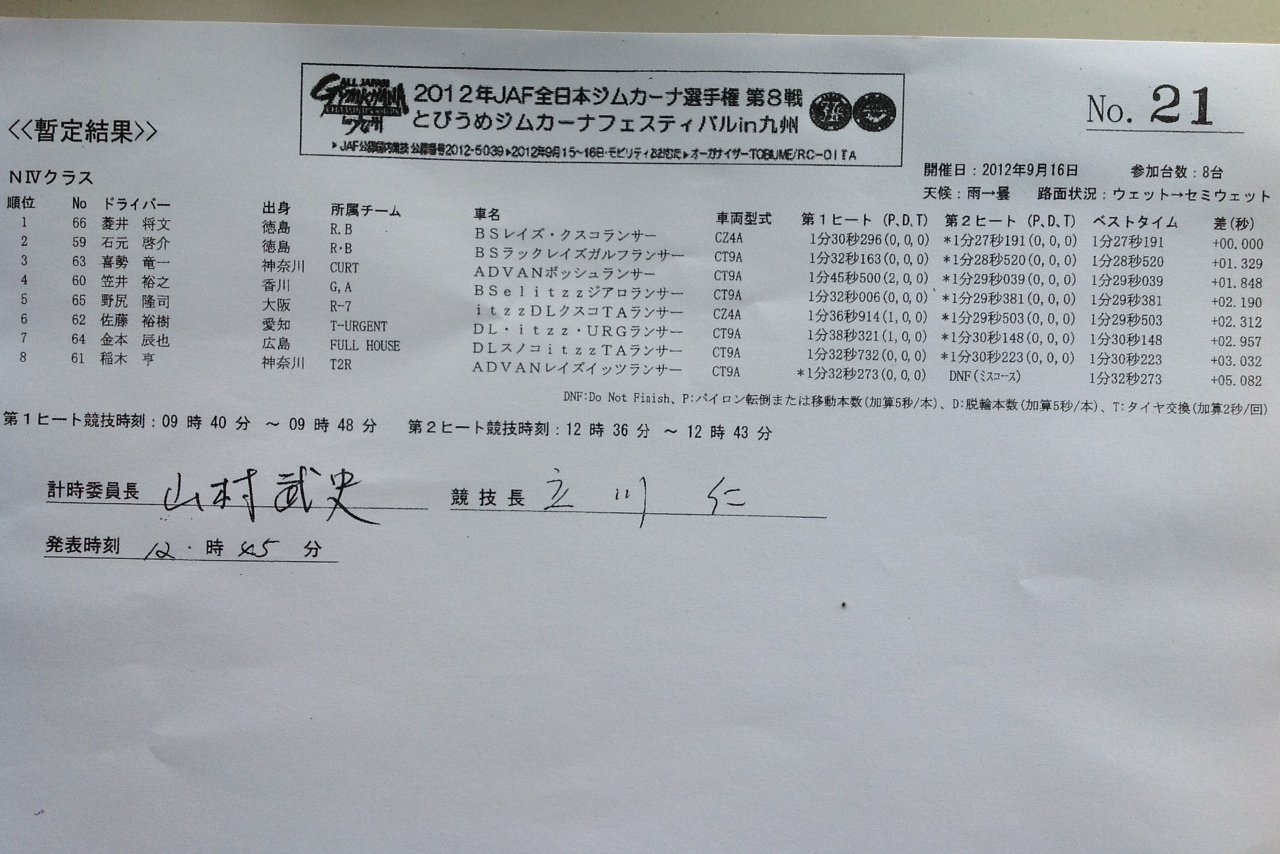 ALL JAPAN
GYMKHANA
in九州
2012年JAF全日本ジムカーナ選手権 第8戦
とびうめジムカーナフェスティバルin九州
▶JAF公認国内競技 公認番号2012-5039▶2012年9月15~16日・モビリティおおむた▶オーガナイザーTOBIUME/RC-OITA
No. 21
<<暫定結果>>
開催日:2012年9月16日 参加台数:8台
NⅣクラス
天候:雨→曇 路面状況:ウェット→セミウェット
順位 No ドライバー 出身 所属チーム 車名 車両型式 第1ヒート (P,D,T) 第2ヒート (P,D,T) ベストタイム 差(秒)
1 66 菱井 将文 徳島 R.B BSレイズ・クスコランサー CZ4A 1分30秒296(0,0,0) *1分27秒191(0,0,0) 1分27秒191 +00.000
2 59 石元 啓介 徳島 R・B BSラックレイズガルフランサー CT9A 1分32秒163(0,0,0) *1分28秒520(0,0,0) 1分28秒520 +01.329
3 63 喜勢 竜一 神奈川 CURT ADVANボッシュランサー CT9A 1分45秒500(2,0,0) *1分29秒039(0,0,0) 1分29秒039 +01.848
4 60 笠井 裕之 香川 G,A BSelitzzジアロランサー CT9A 1分32秒006(0,0,0) *1分29秒381(0,0,0) 1分29秒381 +02.190
5 65 野尻 隆司 大阪 R-7 itzzDLクスコTAランサー CZ4A 1分36秒914(1,0,0) *1分29秒503(0,0,0) 1分29秒503 +02.312
6 62 佐藤 裕樹 愛知 T-URGENT DL・itzz・URGランサー CT9A 1分38秒321(1,0,0) *1分30秒148(0,0,0) 1分30秒148 +02.957
7 64 金本 辰也 広島 FULL HOUSE DLスノコitzzTAランサー CT9A 1分32秒732(0,0,0) *1分30秒223(0,0,0) 1分30秒223 +03.032
8 61 稲木 亨 神奈川 T2R ADVANレイズイッツランサー CT9A *1分32秒273(0,0,0) DNF(ミスコース) 1分32秒273 +05.082
DNF:Do Not Finish、P:パイロン転倒または移動本数(加算5秒/本)、D:脱輪本数(加算5秒/本)、T:タイヤ交換(加算2秒/回)
第1ヒート競技時刻:09 時 40 分 ~ 09 時 48 分 第2ヒート競技時刻:12 時 36 分 ~ 12 時 43 分
計時委員長 山村武史 競技長 立川 仁
発表時刻 12 時 45 分